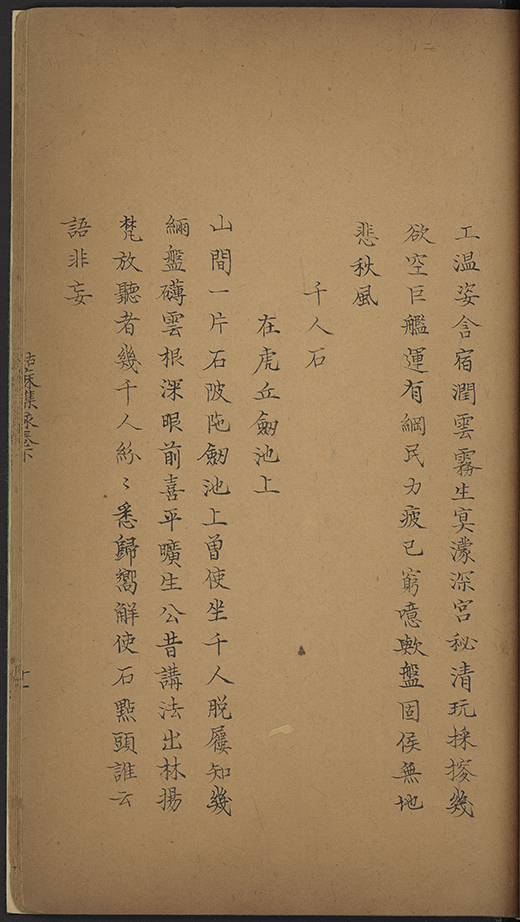 工溫姿含宿潤雲霧生寞濛深宮秘清玩採搜幾
欲空巨艦運有綱民力疲已窮噫歟盤固侯無地
悲秋風
千人石
在虎丘劒池上
山間一片石陂陁劒池上曾使坐千人脱屨知幾
緉盤礴雲根深眼前喜平曠生公昔講法出林揚
梵放聽者幾千人紛〻悉歸嚮解使石點頭誰云
語非妄
集詠卷下
十一